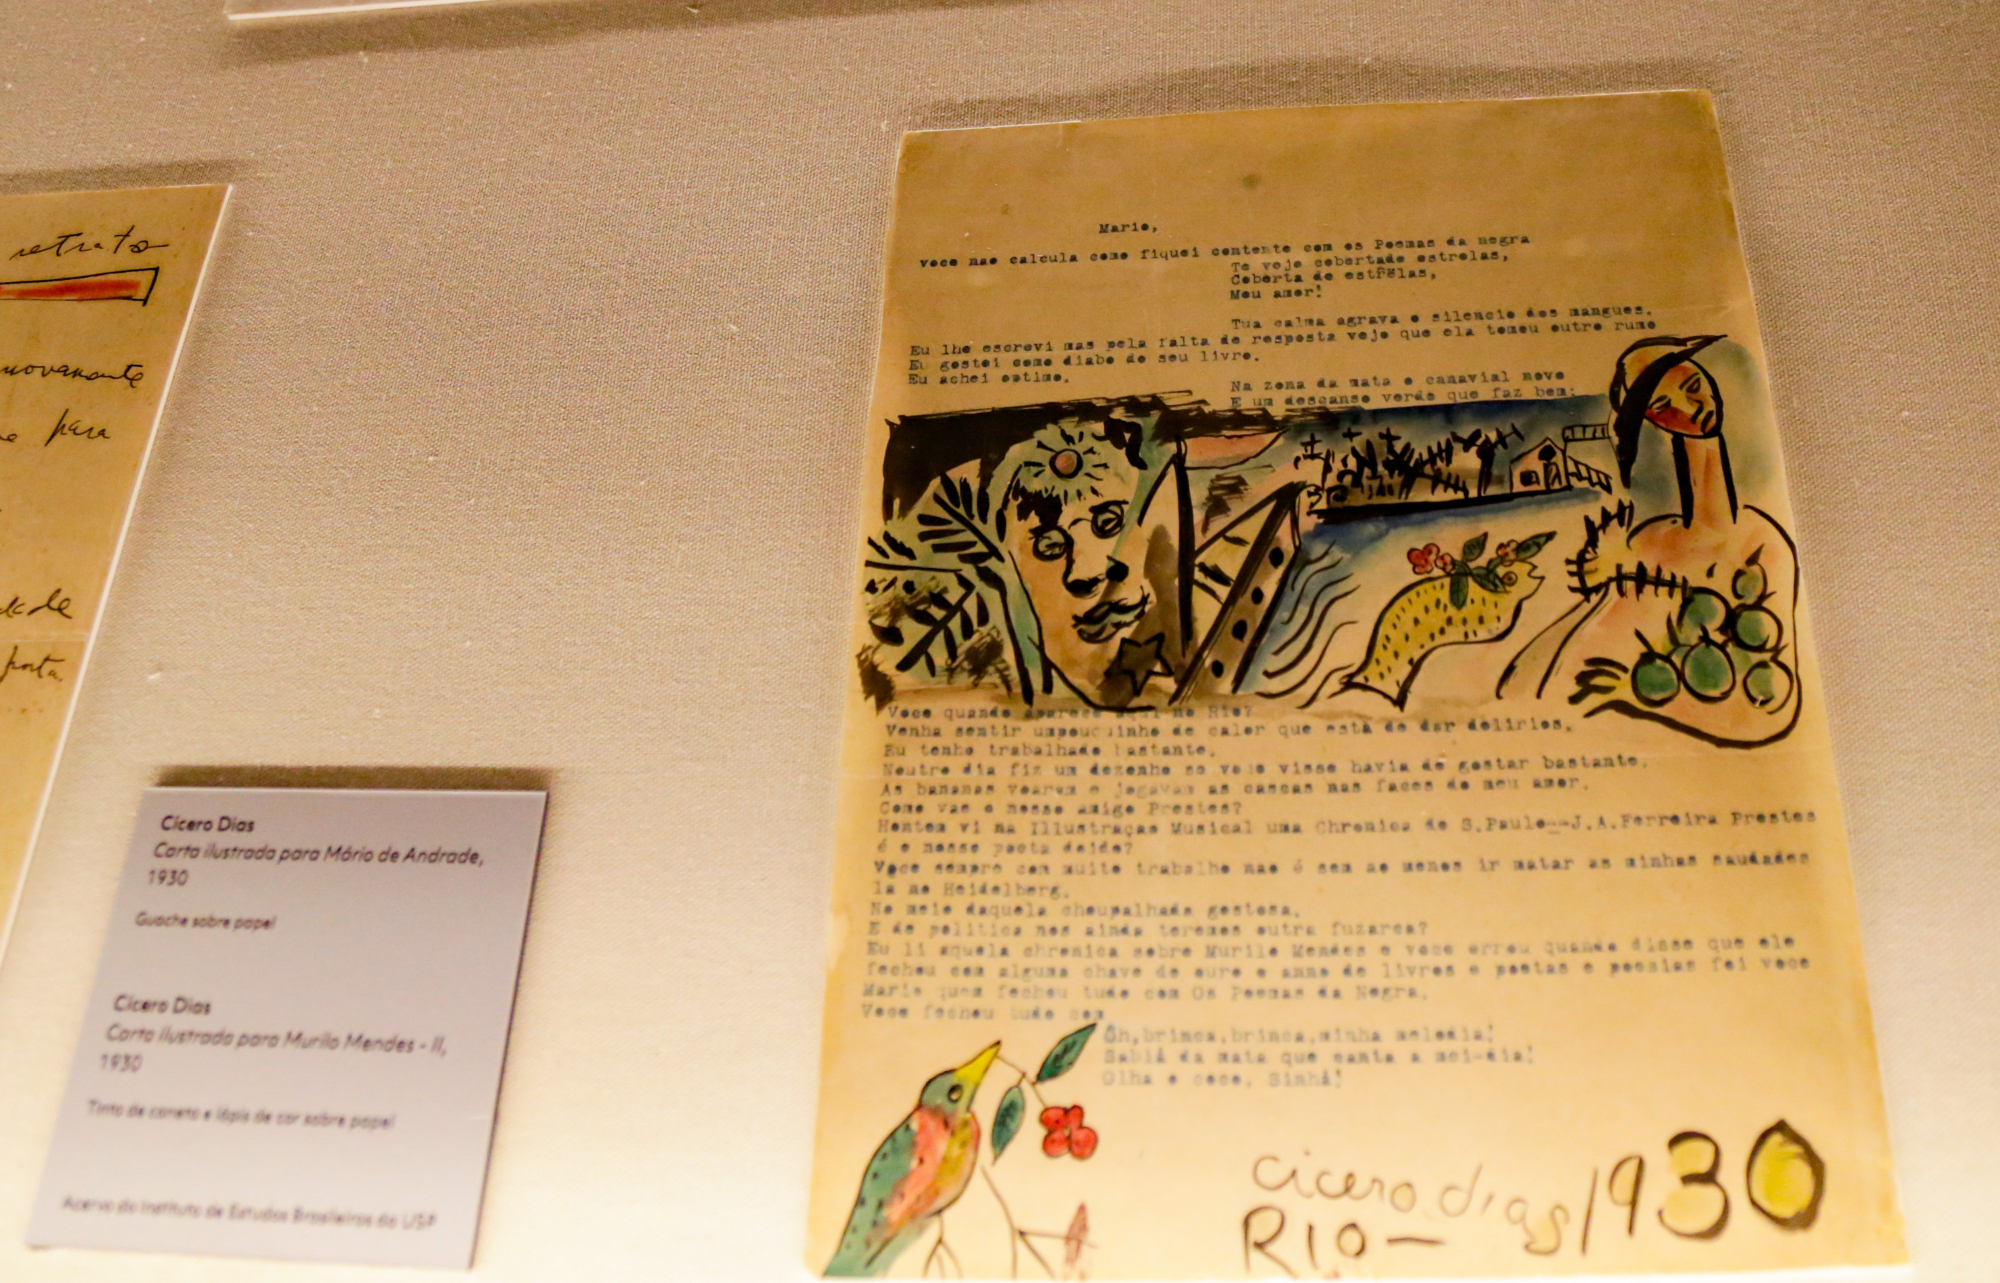 retrato
novamente
para
porta.
Mario,
voce nao calcula como fiquei contente com os Poemas da negra
Te vejo cobertade estrelas,
Coberta de estrelas,
Meu amor!
Tua calma agrava o silencio dos mangues.
Eu lhe escrevi mas pela falta de resposta vejo que ela tomou outro rumo
Eu gostei como diabo do seu livro.
Eu achei optimo.
Na zona da mata o canavial novo
E um descanso verde que faz bem;
Voce quando aparece aqui no Rio?
Venha sentir umpouquinho de calor que está de dar delirios.
Eu tenho trabalhado bastante.
Noutro dia fiz um dezenho se voce visse havia de gostar bastante.
As bananas voarem e jogavam as cascas nas faces do meu amor.
Como vae o nosso amigo Prestes?
Hontem vi na Illustração Musical uma Chronica de S.Paulo--J.A.Ferreira Prestes
é o nosso poeta doido?
Voce sempre com muito trabalho nao é sem ao menos ir matar as minhas saudades
la no Heidelberg.
No meio daquela choupalhada gostosa.
E de politica nos ainda teremos outra fuzarca?
Eu li aquela chronica sobre Murilo Mendes e voce errou quando disse que ele
fechou com alguma chave de ouro o anno de livros e poetas e poesias foi voce
Mario quem fechou tudo com Os Poemas da Negra.
Voce fechou tudo com
Oh,brinca,brinca,minha melodia!
Sabiá da mata que canta a mei-dia!
Olha o coco, Sinhá!
cicero dias 1930
RIO—
Cícero Dias
Carta ilustrada para Mário de Andrade,
1930
Guache sobre papel
Cícero Dias
Carta ilustrada para Murilo Mendes - II,
1930
Tinta de caneta e lápis de cor sobre papel
Acervo do Instituto de Estudos Brasileiros da USP